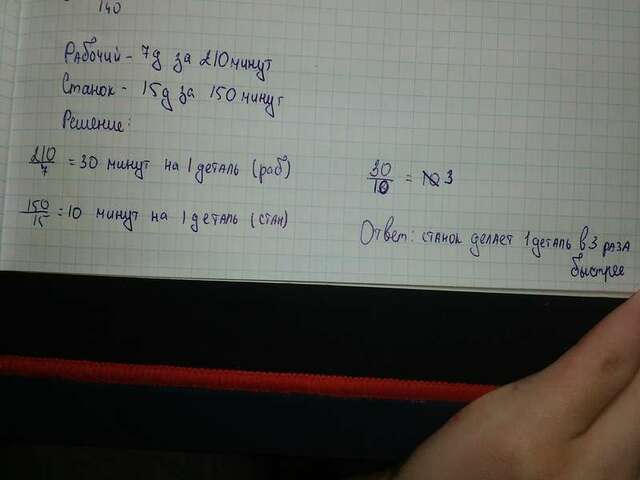 140
Рабочий - 7д за 210 минут
Станок - 15д за 150 минут
Решение:
210/7 = 30 минут на 1 деталь (раб)
150/15 = 10 минут на 1 деталь (стан)
30/10 = 3
Ответ: станок делает 1 деталь в 3 раза
быстрее